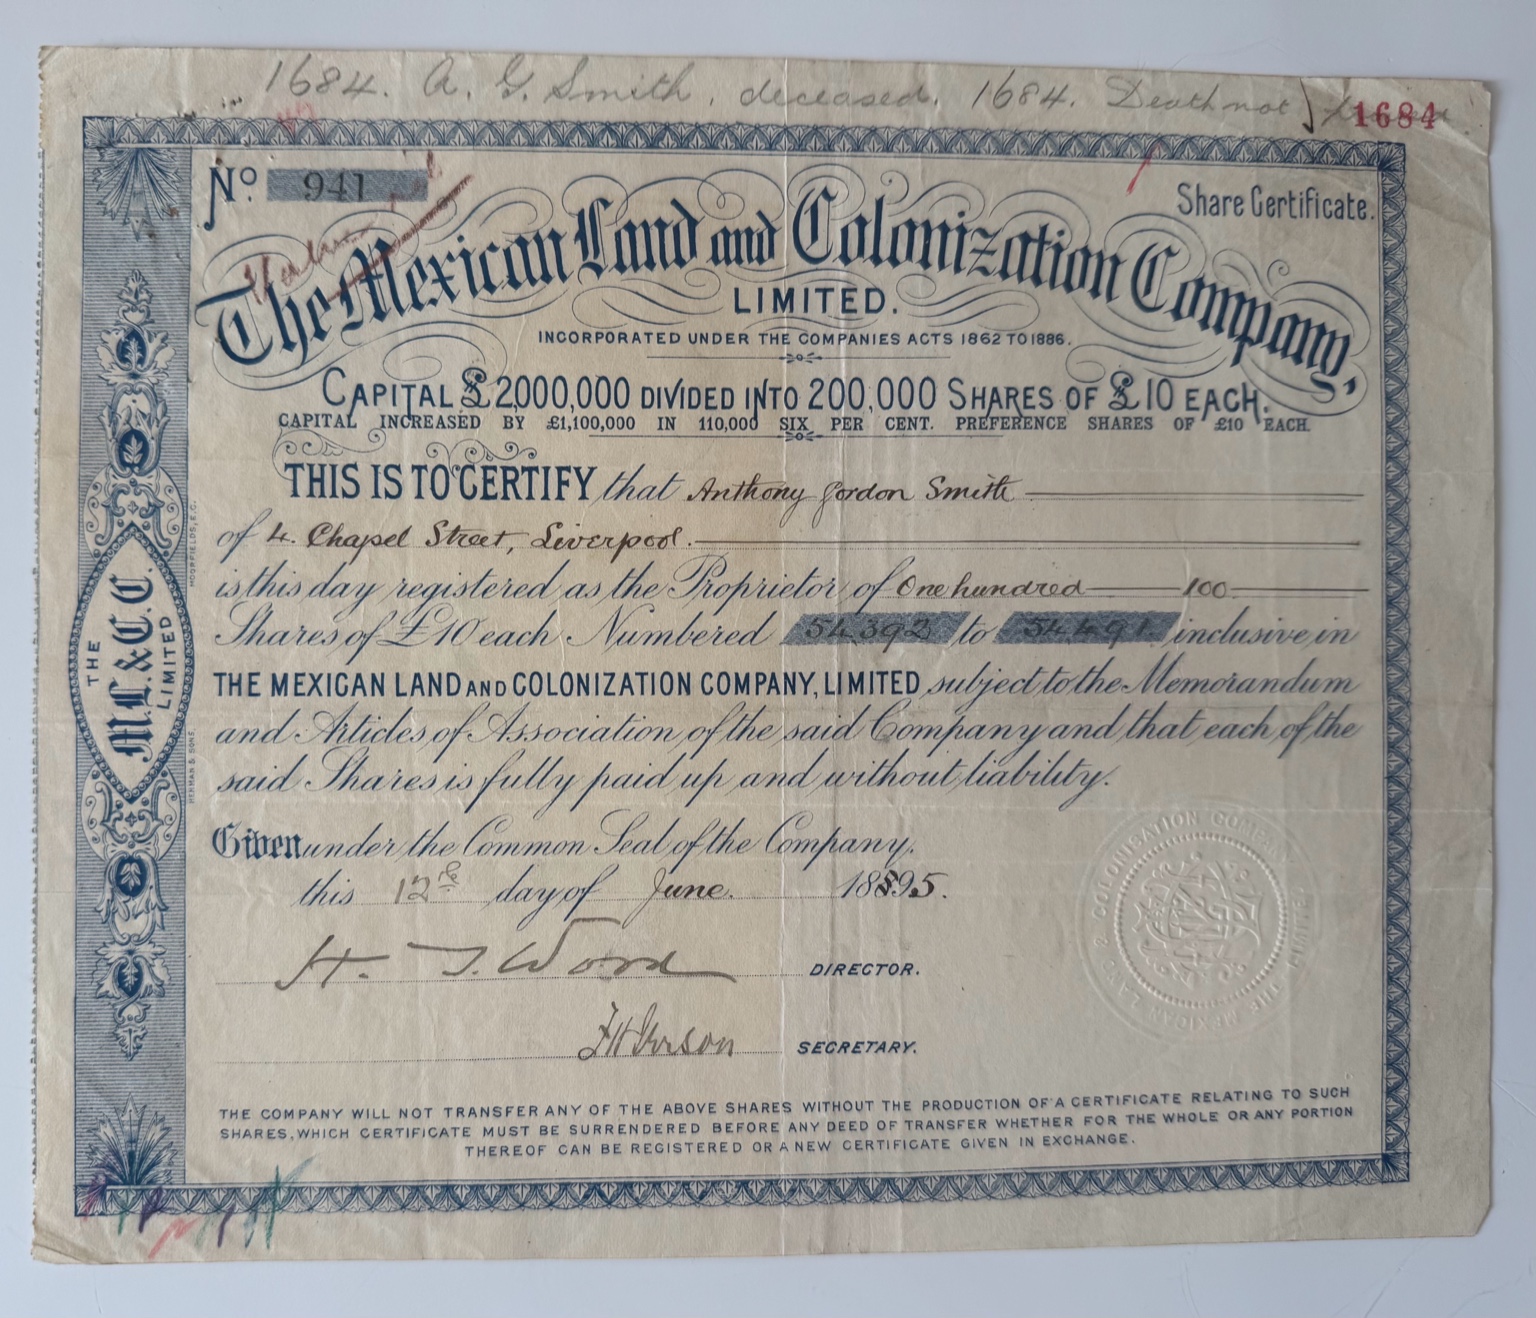 1684. A. G. Smith, deceased. 1684. Death not
1684
No. 941
Share Certificate.
The Mexican Land and Colonization Company,
LIMITED.
INCORPORATED UNDER THE COMPANIES ACTS 1862 TO 1886.
CAPITAL £2000,000 DIVIDED INTO 200,000 SHARES OF £10 EACH.
CAPITAL INCREASED BY £1,100,000 IN 110,000 SIX PER CENT. PREFERENCE SHARES OF £10 EACH.
THIS IS TO CERTIFY that Anthony Gordon Smith
of 4. Chapel Street, Liverpool.
is this day registered as the Proprietor of One hundred 100
Shares of £10 each Numbered 54392 to 54491 inclusive, in
THE MEXICAN LAND AND COLONIZATION COMPANY, LIMITED subject to the Memorandum
and Articles of Association of the said Company and that each of the
said Shares is fully paid up and without liability.
Given under the Common Seal of the Company.
this 12th day of June. 18895.
H. J. Word DIRECTOR.
SECRETARY.
THE COMPANY WILL NOT TRANSFER ANY OF THE ABOVE SHARES WITHOUT THE PRODUCTION OF A CERTIFICATE RELATING TO SUCH
SHARES, WHICH CERTIFICATE MUST BE SURRENDERED BEFORE ANY DEED OF TRANSFER WHETHER FOR THE WHOLE OR ANY PORTION
THEREOF CAN BE REGISTERED OR A NEW CERTIFICATE GIVEN IN EXCHANGE.
THE
M.L. & C. C.
LIMITED
HERMAN & SONS. MOORFIELDS, E.C.
THE MEXICAN LAND & COLONISATION COMPANY LIMITED